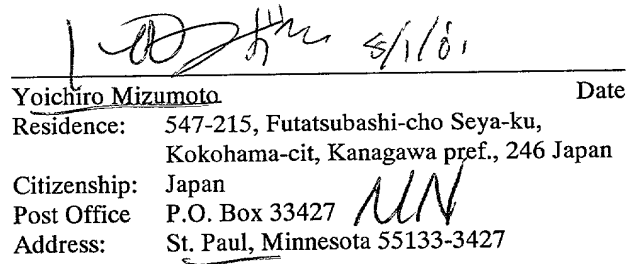 8/1/01
Yoichiro Mizumoto Date
Residence: 547-215, Futatsubashi-cho Seya-ku,
Kokohama-cit, Kanagawa pref., 246 Japan
Citizenship: Japan
Post Office P.O. Box 33427 MN
Address: St. Paul, Minnesota 55133-3427